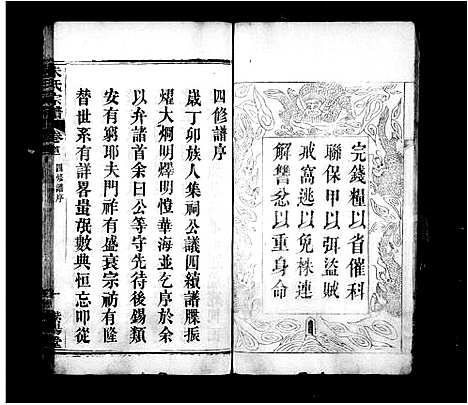 完錢糧以省催科
聯保甲以弭盜賊
戒窩逃以免株連
解讐忿以重身命
四修譜序
歲丁卯族人集祠公議四續譜牒振
燿大烱明燡明愷華海並乞序於余
以弁諸首余曰公等守先待後錫類
安有窮耶夫門祚有盛衰宗祊有隆
替世系有詳畧蚩氓數典恒忘叩從
氏宗譜
卷首
四修譜序
堂